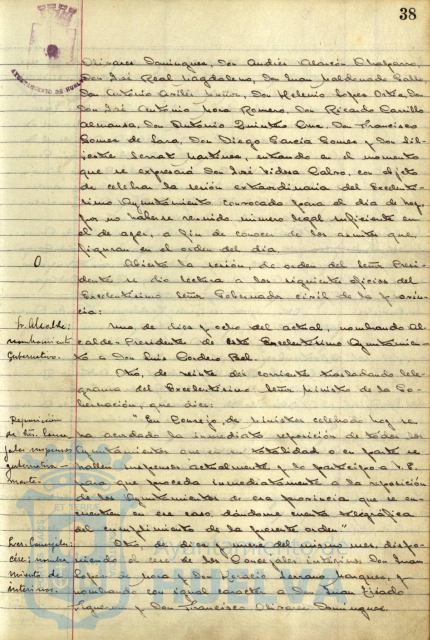 38
AYUNTAMIENTO DE HUELVA
Olivares Dominguez, Don Andrés Alarcón Chaparro,
Don José Real Magdaleno, Don Juan Maldonado Gallo,
Don Antonio Avilés Muñoz, Don Helenio Lopez Ortiz, Don
Don José Antonio Mora Romero, Don Ricardo Carrillo
Almansa, Don Antonio Quintero Cruz, Don Francisco
Gomez de Lara, Don Diego García Gomez y Don Sil-
vestre Serrat Martinez, entrando en el momento
que se expresará Don José Videra Calvo, con objeto
de celebrar la sesión extraordinaria del Excelentí-
simo Ayuntamiento convocado para el dia de hoy
por no haberse reunido número legal suficiente en
el de ayer, a fin de conocer de los asuntos que
figuran en el orden del dia.
Abierta la sesión, de orden del Señor Presi-
dente se dió lectura a los siguientes oficios del
Excelentísimo Señor Gobernador civil de la provin-
cia:
Sr. Alcalde:
nombramiento
gubernativo.
Uno, de diez y ocho del actual, nombrando Al-
calde-Presidente de este Excelentísimo Ayuntamien-
to a Don Luis Cordero Bel.
Otro, de veinte del corriente trasladando tele-
grama del Excelentísimo Señor Ministro de la Go-
bernación, que dice:
Reposición
de Ctos. Conce-
jales suspensos
gubernativa-
mente.
"En Consejo de Ministros celebrado hoy se
ha acordado la inmediata reposición de todos los
Ayuntamientos que en totalidad o en parte se
hallen suspensos actualmente y lo participo a V.E.
para que proceda inmediatamente a la reposición
de los Ayuntamientos de esa provincia que se en-
cuentren en ese caso, dándome cuenta telegráfica
del cumplimiento de la presente orden"
Sres. Concejales:
cese; nombra-
miento de
interinos.
Otro, de diez y nueve del mismo mes, dispo-
niendo el cese de los Concejales interinos Don Juan
Lopez de Mora y Don Horacio Serrano Marquez, y
nombrando con igual caracter a Don Juan Tirado
Figueroa y Don Francisco Olivares Dominguez.
Ayuntamiento de
HUELVA